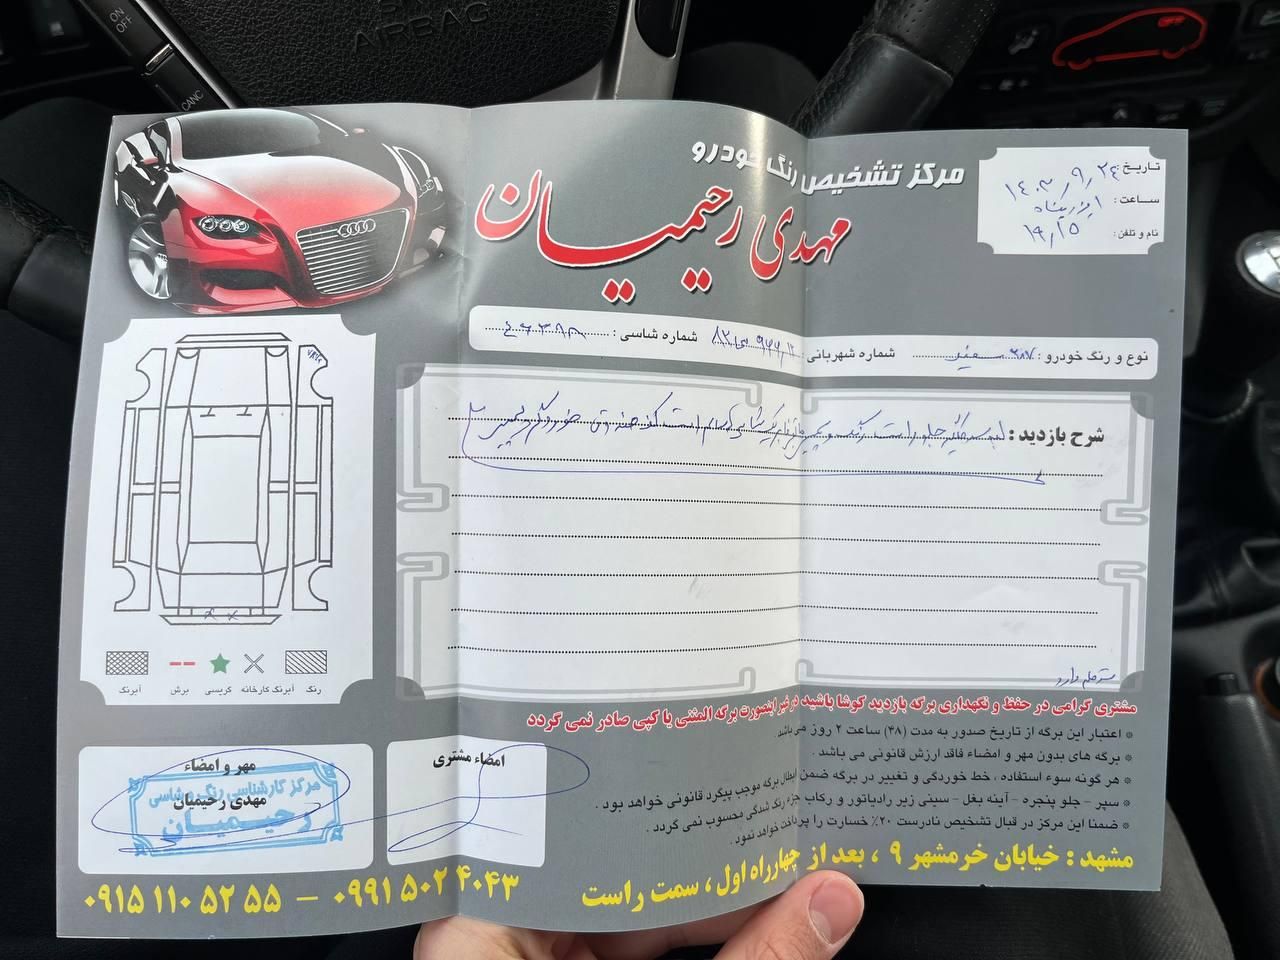 ON
OFF
CANC
AIRBAG
مرکز تشخیص رنگ خودرو
مهدی رحیمیان
تاریخ: ۱۴۰۳/۹/۲۴
ساعت:
نام و تلفن: ۱۹/۲۵
نوع و رنگ خودرو: ۲۰۷ سفید شماره شهربانی: شماره شاسی: ۴۶۳۹۸
شرح بازدید: گلگیر جلو راست رنگ
رنگ
آبرنگ کارخانه
کریسی
برش
آبرنگ
مشتری گرامی در حفظ و نگهداری برگه بازدید کوشا باشید در غیر اینصورت برگه المثنی یا کپی صادر نمی گردد
* اعتبار این برگه از تاریخ صدور به مدت (۴۸) ساعت ۲ روز می باشد.
* برگه های بدون مهر و امضاء فاقد ارزش قانونی می باشد.
* هر گونه سوء استفاده، خط خوردگی و تغییر در برگه ضمن ابطال برگه موجب پیگرد قانونی خواهد بود.
* سپر - جلو پنجره - آینه بغل - سینی زیر رادیاتور و رکاب جزء رنگ شدگی محسوب نمی گردد.
* ضمنا این مرکز در قبال تشخیص نادرست ۲۰٪ خسارت را پرداخت خواهد نمود.
امضاء مشتری
مهر و امضاء
مهدی رحیمیان
مرکز کارشناسی رنگ و شاسی
رحیمیان
مشهد: خیابان خرمشهر ۹، بعد از چهارراه اول، سمت راست
۰۹۱۵ ۱۱۰ ۵۲ ۵۵ - ۰۹۹۱ ۵۰۲ ۴۰۴۳